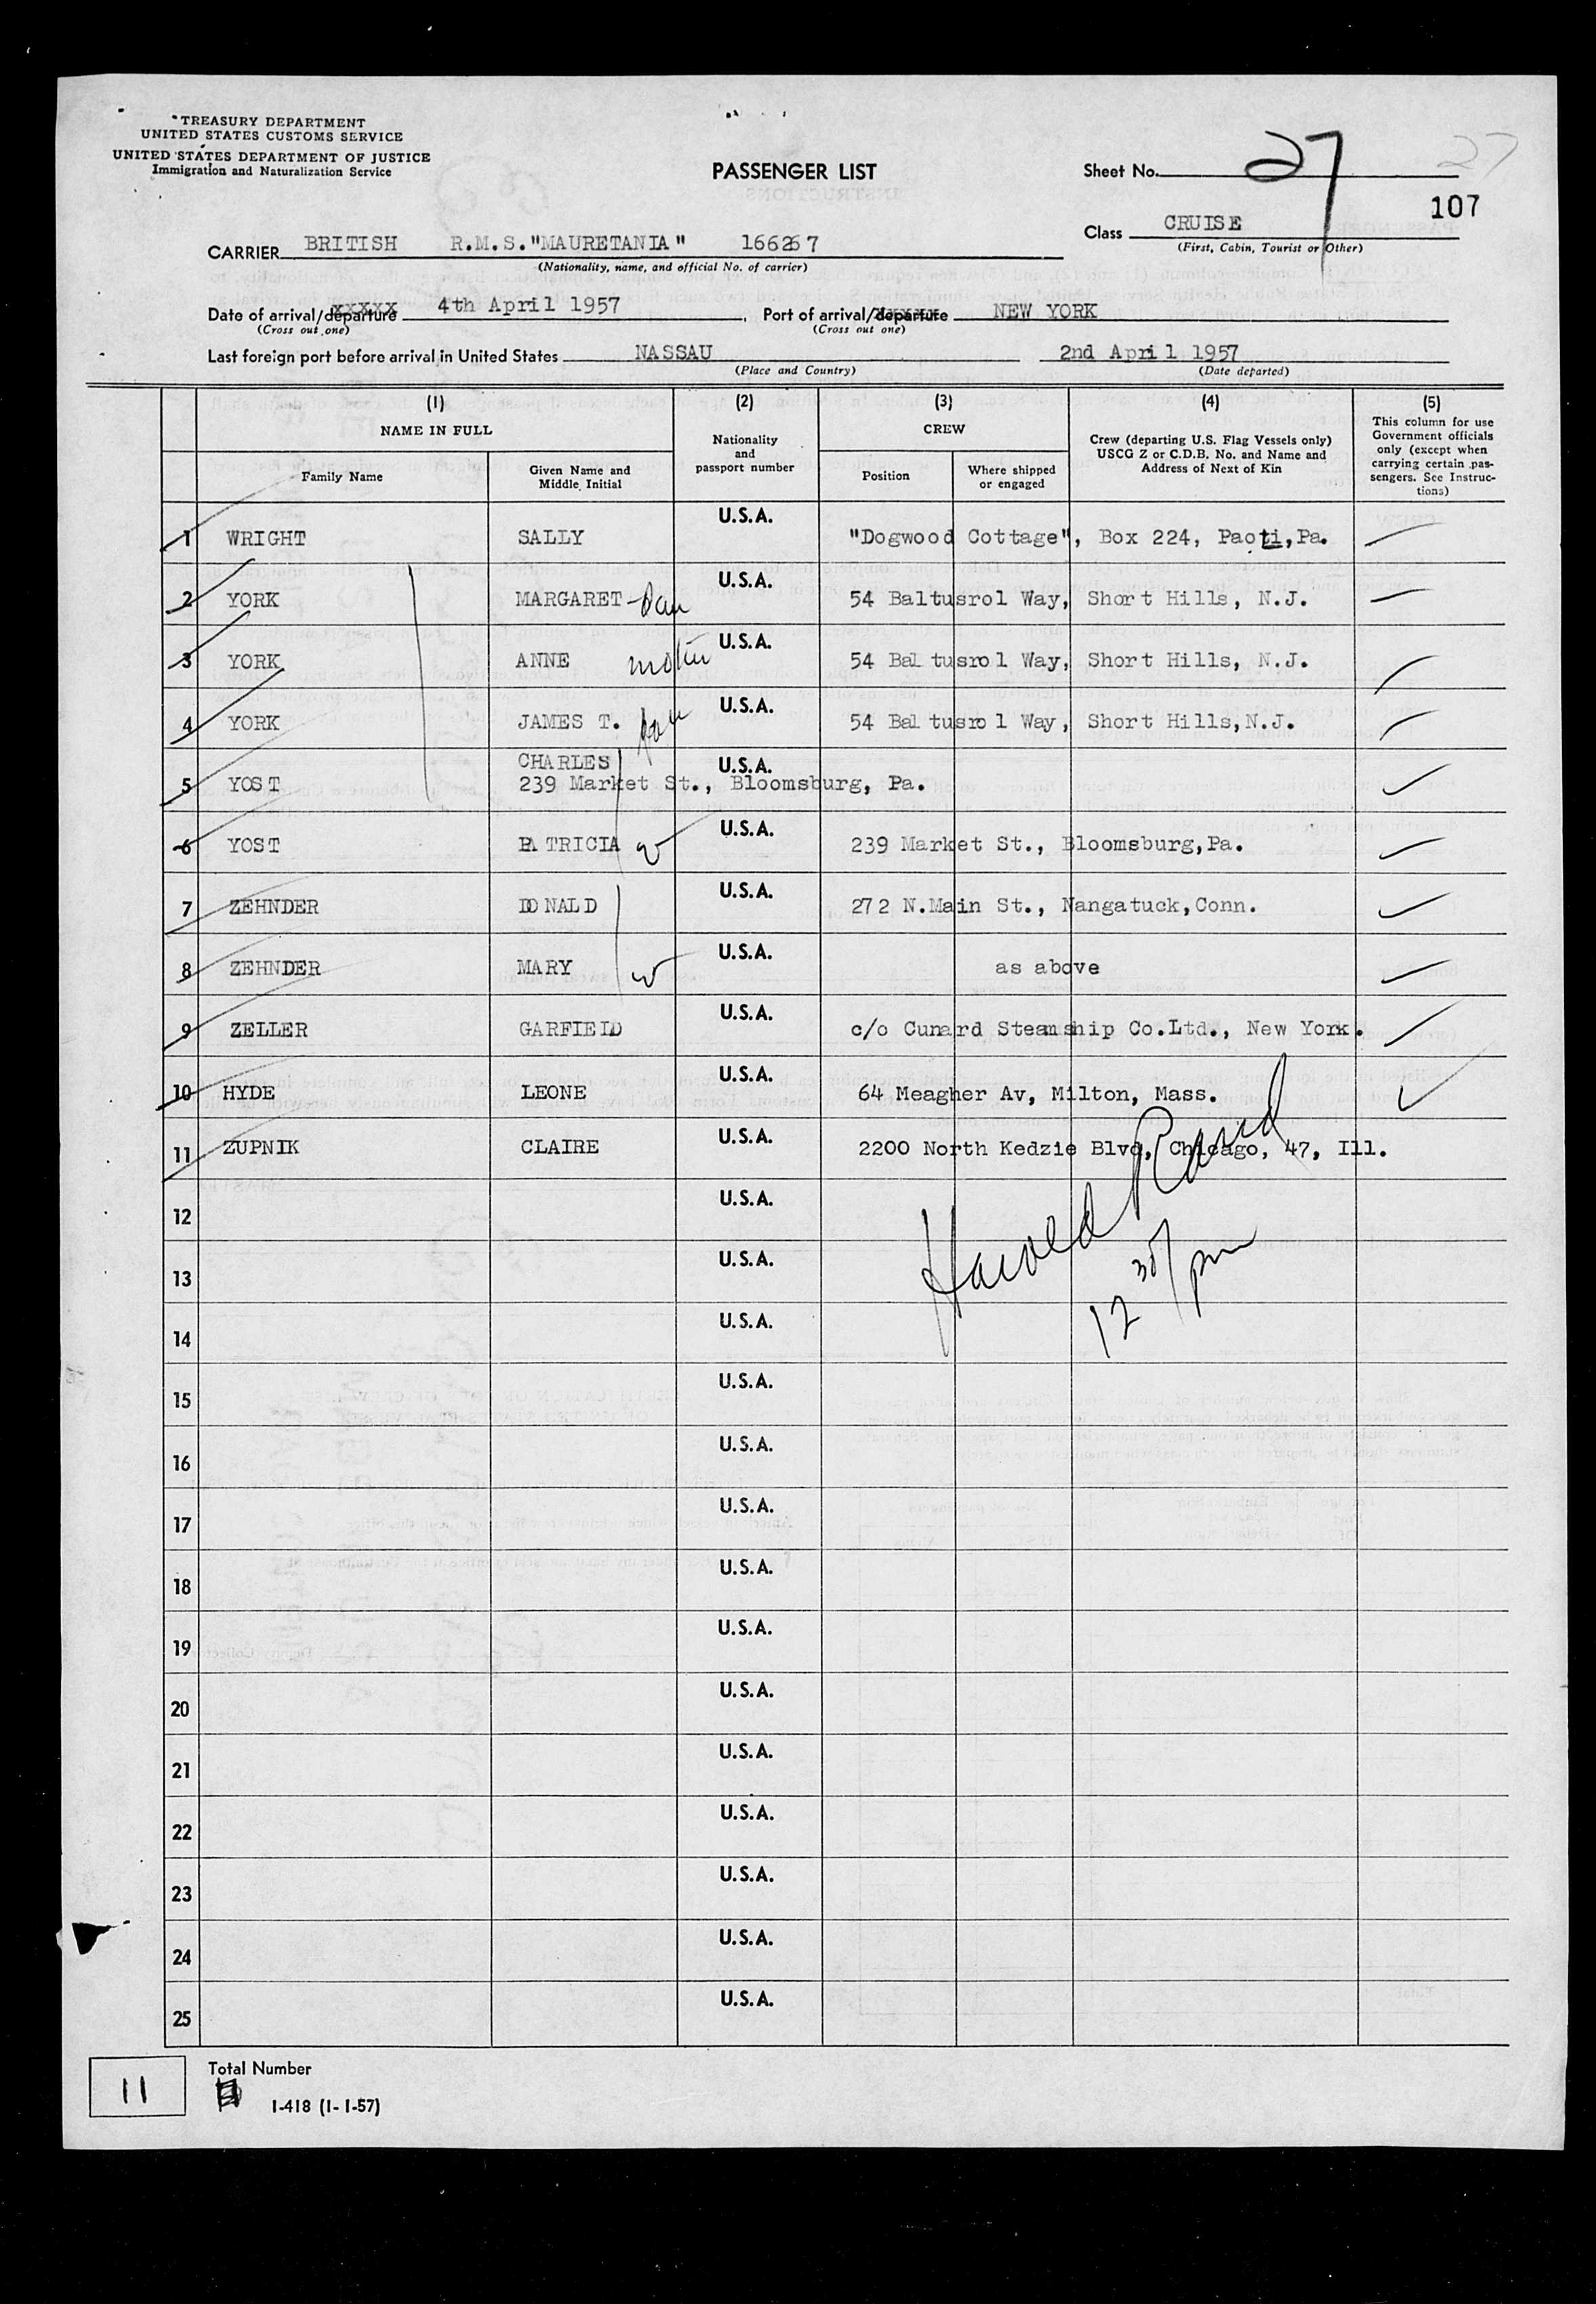 TREASURY DEPARTMENT
UNITED STATES CUSTOMS SERVICE
UNITED STATES DEPARTMENT OF JUSTICE
Immigration and Naturalization Service
PASSENGER LIST
Sheet No. 27 27
107
Class CRUISE
(First, Cabin, Tourist or Other)
CARRIER BRITISH R.M.S."MAURETANIA" 166267
(Nationality, name, and official No. of carrier)
Date of arrival/departure 4th April 1957, Port of arrival/departure NEW YORK
(Cross out one) (Cross out one)
Last foreign port before arrival in United States NASSAU 2nd April 1957
(Place and Country) (Date departed)
(1) (2) (3) (4) (5)
NAME IN FULL
Family Name
Given Name and Middle Initial
Nationality and passport number
CREW
Position
Where shipped or engaged
Crew (departing U.S. Flag Vessels only)
USCG Z or C.D.B. No. and Name and
Address of Next of Kin
This column for use
Government officials
only (except when
carrying certain pas-
sengers. See Instruc-
tions)
1 WRIGHT SALLY U.S.A. "Dogwood Cottage", Box 224, Paoti,Pa.
2 YORK MARGARET U.S.A. 54 Baltusrol Way, Short Hills, N.J.
3 YORK ANNE mother U.S.A. 54 Baltusrol Way, Short Hills, N.J.
4 YORK JAMES T. U.S.A. 54 Baltusrol Way, Short Hills,N.J.
5 YOST CHARLES U.S.A.
239 Market St., Bloomsburg, Pa.
6 YOST PATRICIA w U.S.A. 239 Market St., Bloomsburg,Pa.
7 ZEHNDER DONALD U.S.A. 272 N.Main St., Nangatuck,Conn.
8 ZEHNDER MARY w U.S.A. as above
9 ZELLER GARFIELD U.S.A. c/o Cunard Steamship Co.Ltd., New York.
10 HYDE LEONE U.S.A. 64 Meagher Av, Milton, Mass.
11 ZUPNIK CLAIRE U.S.A. 2200 North Kedzie Blvd, Chicago, 47, Ill.
12 U.S.A.
Harold
13 U.S.A.
12 30/pm
14 U.S.A.
15 U.S.A.
16 U.S.A.
17 U.S.A.
18 U.S.A.
19 U.S.A.
20 U.S.A.
21 U.S.A.
22 U.S.A.
23 U.S.A.
24 U.S.A.
25 U.S.A.
11
Total Number
I-418 (1-1-57)